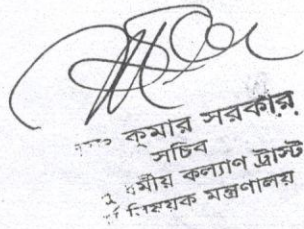 কুমার সরকার
সচিব
কল্যাণ ট্রাস্ট
বিষয়ক মন্ত্রণালয়